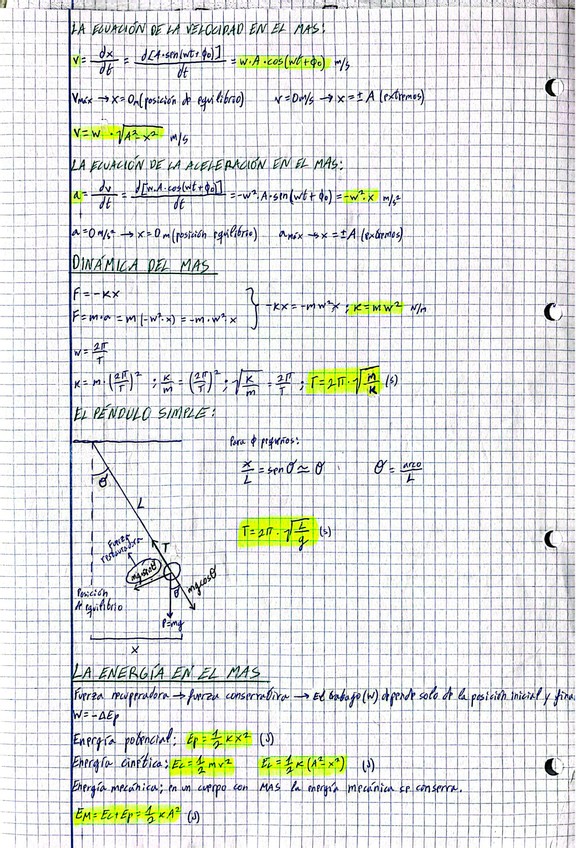 LA ECUACIÓN DE LA VELOCIDAD EN EL MAS:
v = dx/dt = d[A·sen(wt+ϕ₀)]/dt = w·A·cos(wt+ϕ₀) m/s
Vmáx → x=0m (posición de equilibrio) v=0m/s → x=±A (extremos)
V=w·√(A²-x²) m/s
LA ECUACIÓN DE LA ACELERACIÓN EN EL MAS:
a = dv/dt = d[w·A·cos(wt+ϕ₀)]/dt = -w²·A·sen(wt+ϕ₀) = -w²·x m/s²
a=0 m/s² → x=0m (posición equilibrio) amáx → x=±A (extremos)
DINÁMICA DEL MAS
F=-Kx
F=m·a = m(-w²·x) = -m·w²·x } -Kx=-mw²x ; K=mw² N/m
w=2π/T
K=m·(2π/T)² ; K/m=(2π/T)² ; √(K/m) = 2π/T ; T=2π·√(m/K) (s)
EL PÉNDULO SIMPLE:
Para ϕ pequeños:
x/L = sen θ ≃ θ θ = arco/L
θ
L
T=2π·√(L/g) (s)
Fuerza
restauradora
T
mg senθ
θ
mg cosθ
Posición
de equilibrio
P=mg
x
LA ENERGÍA EN EL MAS
Fuerza recuperadora → fuerza conservativa → El trabajo (W) depende solo de la posición inicial y fina
W=-ΔEp
Energía potencial: Ep=1/2 Kx² (J)
Energía cinética: Ec=1/2 mv² Ec=1/2 K(A²-x²) (J)
Energía mecánica; en un cuerpo con MAS la energía mecánica se conserva.
EM=Ec+Ep=1/2 KA² (J)